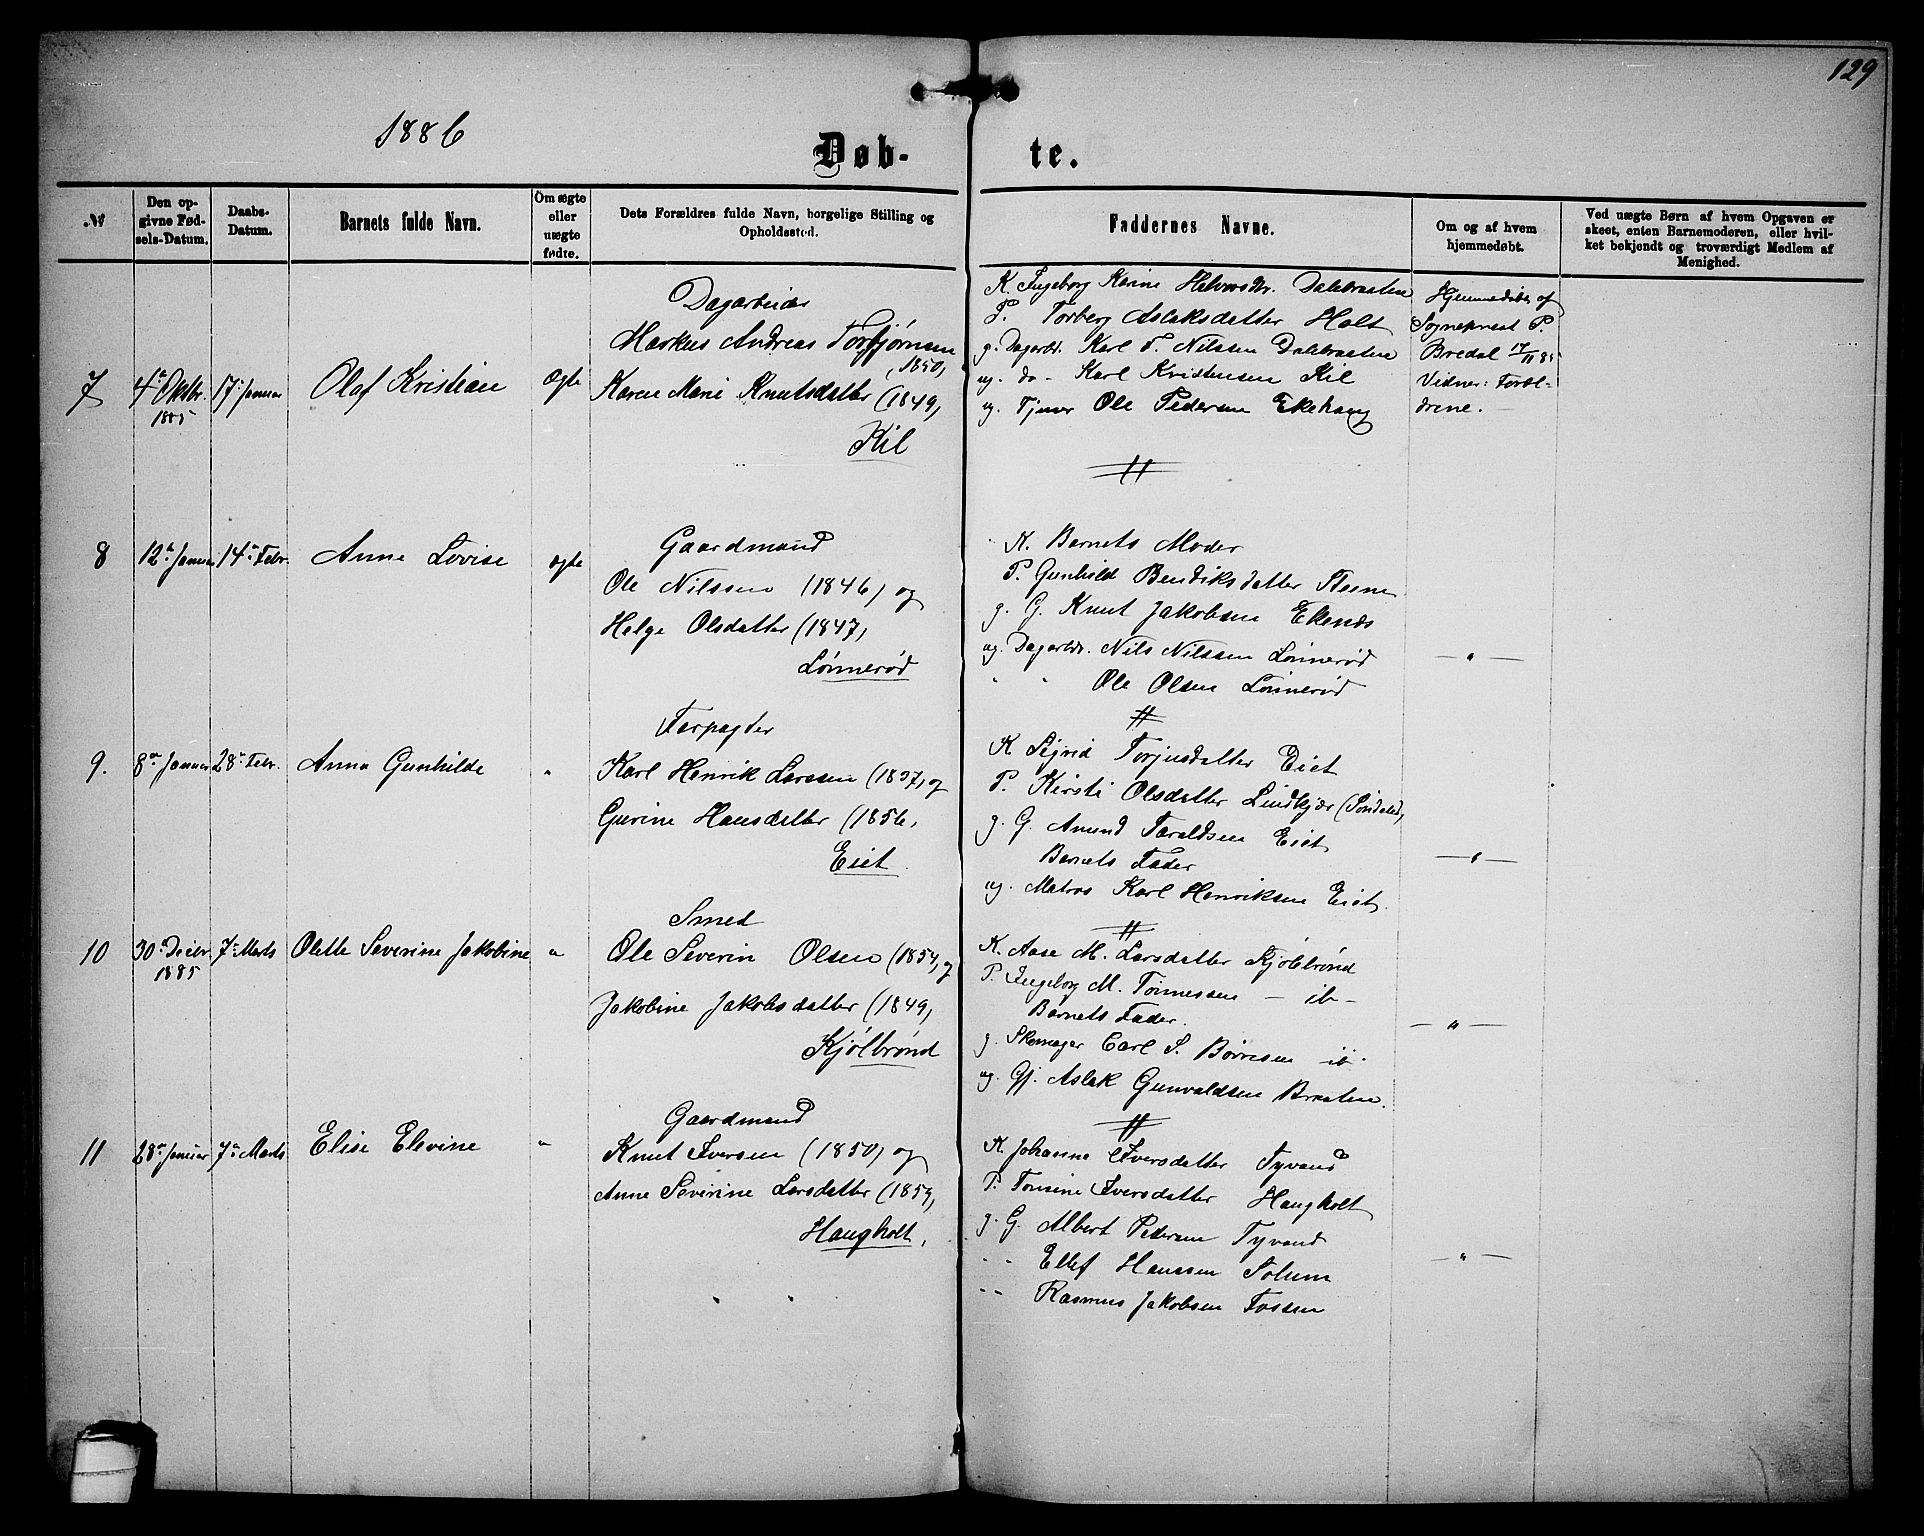 129
1886
Døb-
te.
№
Den op-
givne Fød-
sels-Datum.
Daabs-
Datum.
Barnets fulde Navn.
Om ægte
eller
uægte
fødte.
Dets Forældres fulde Navn, borgelige Stilling og
Opholdssted.
Faddernes Navne.
Om og af hvem
hjemmedøbt.
Ved uægte Børn af hvem Opgaven er
skeet, enten Barnemoderen, eller hvil-
ket bekjendt og troværdigt Medlem af
Menighed.
7
4de Oktbr.
1885
17 Januar
Olaf Kristian
Ægte
Dagarbeider
Markus Andreas Torbjørnsen
(1850)
Karen Marie Knutsdatter (1849)
Kil
K. Ingeborg Karine Halvorsdr. Dalebraaten
P. Torberg Aslaksdatter Holt
g. Dagarbr. Karl T. Nilssen Dalebraaten
ug. do - Karl Kristensen Kil
ug. Tjener Ole Pedersen Ekehaug
Hjemmedøbt af
Sognepræst P.
Bredal 17/11 85
Vidner: Foræl-
drene.
8
12te Januar
14de Febr.
Anne Lovise
ægte
Gaardmand
Ole Nilssen (1846) og
Helge Olsdatter (1847)
Lønnerød
K. Barnets Moder
P. Gunhild Bendiksdatter Steen
g. G. Knut Jakobsen Ekenæs
ug. Dagarbr. Nils Nilssen Lønnerød
" " Ole Olsen Lønnerød
— " —
9.
8de Januar
28de Febr.
Anna Gunhilde
"
Forpagter
Karl Henrik Larssen (1837) og
Gurine Hansdatter (1856)
Eiet.
K. Sigrid Torjusdatter Eiet
P. Kirsti Olsdatter Lindkjær (Søndeled)
g. G. Amund Taraldsen Eiet
Barnets Fader
ug. Matros Karl Henriksen Eiet.
— " —
10
30te Decbr.
1885
7de Marts
Olette Severine Jakobine
"
Smed
Ole Severin Olsen (1854) og
Jakobine Jakobsdatter (1849)
Kjølbrønd
K. Aase M. Larsdatter Kjølbrønd
P. Ingeborg M. Tønnessen — ib —
Barnets Fader.
g. Skomager Carl S. Børresen ib -
ug. Gj. Aslak Gunvaldsen Braaten.
— " —
11
28de Januar
7de Marts
Elise Elevine
"
Gaardmand
Knut Iversen (1850) og
Anne Severine Larsdatter (1854)
Haugholt,
K. Johanne Iversdatter Tyvand
P. Tomine Iversdatter Haugholt
g. G. Albert Pedersen Tyvand
" " Ellef Hanssen Solum
" " Rasmus Jakobsen Fossen
— " —